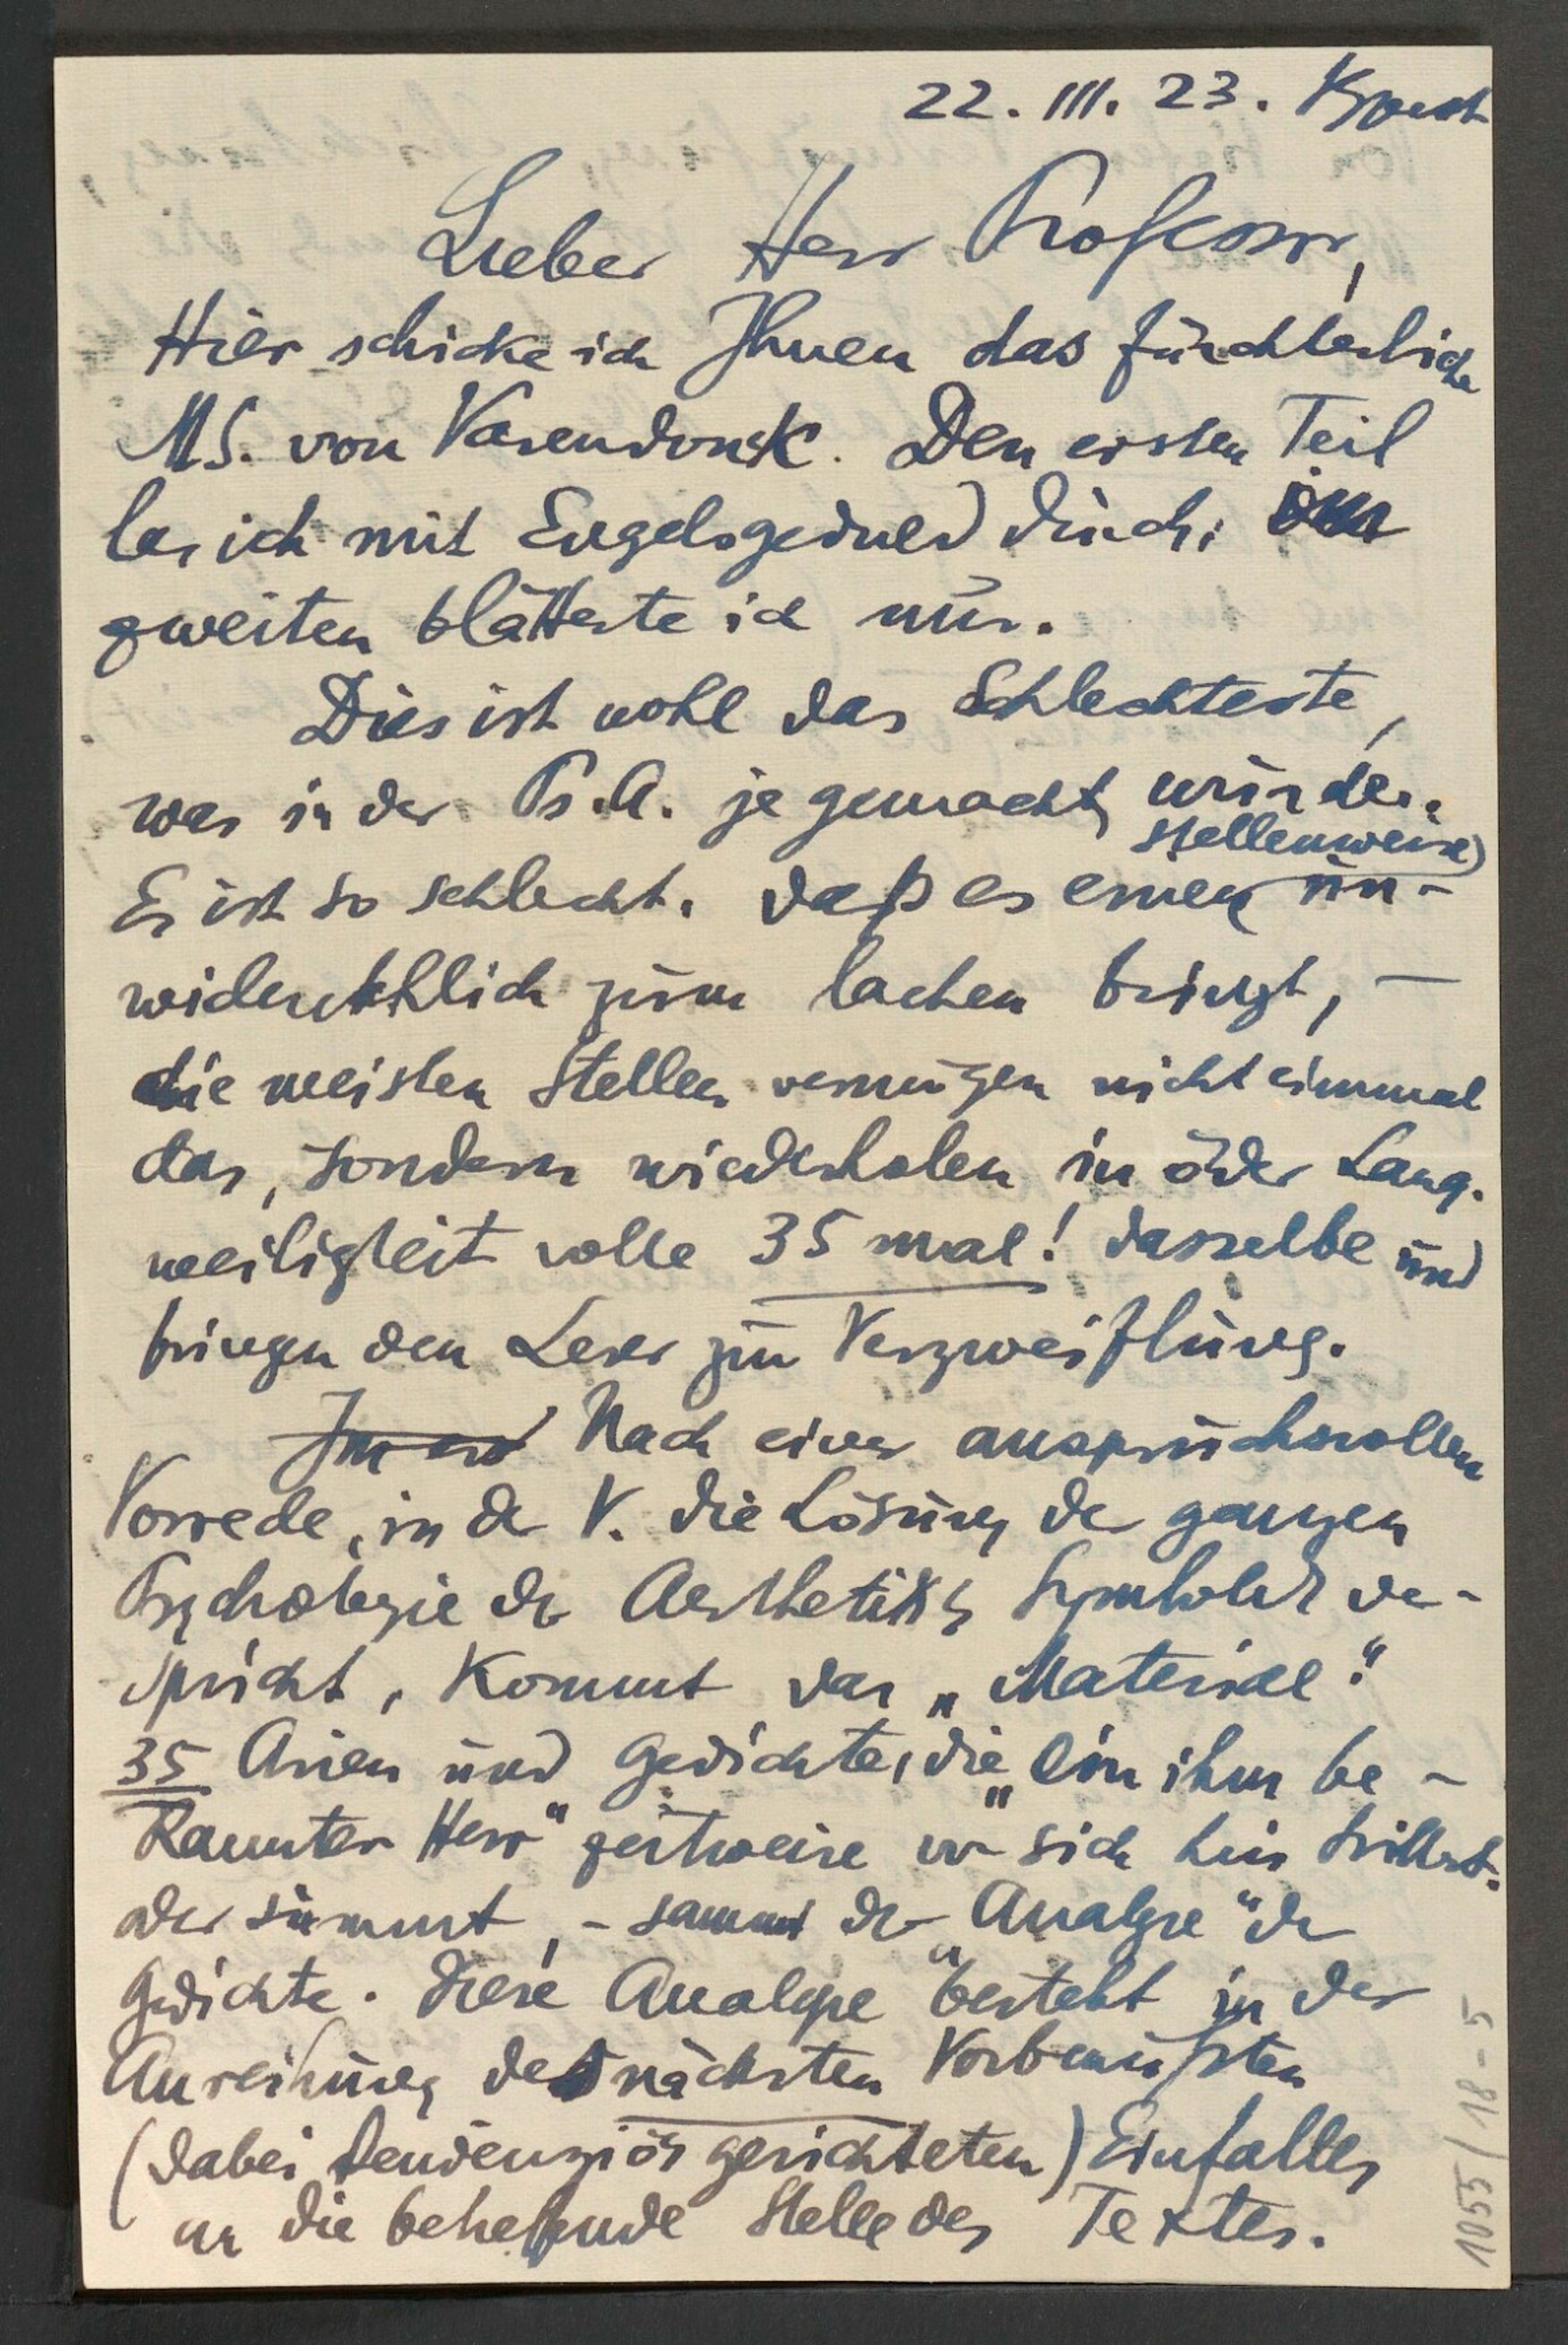 22. III. 23. Bpest
Lieber Herr Professor,
Hier schicke ich Ihnen das fürchterliche
MS. von Varendonck. Den ersten Teil
las ich mit Engelsgeduld durch, im
zweiten blätterte ich nur.
Dies ist wohl das Schlechteste,
was in der Ps.A. je gemacht wurde.
stellenweise
Es ist so schlecht, daß es einen un-
widerstehlich zum lachen bringt, –
die meisten Stellen vermögen nicht einmal
das, sondern wiederholen in öder Lang-
weiligkeit volle 35 mal! dasselbe und
bringen den Leser zur Verzweiflung.
Nach einer anspruchsvollen
Vorrede, in der V. die Lösung der ganzen
Psychologie der Aesthetik & Symbolik ver-
spricht, kommt das „Material“:
35 Arien und Gedichte, die „ein ihm be-
kannter Herr“ zeitweise vor sich hin trillert
oder summt, – sammt der „Analyse“ der
Gedichte. Diese „Analyse“ besteht in der
Anreihung des nächsten Vorbewußten
(dabei tendenziös gerichteten) Einfalles
an die betreffende Stelle des Textes.
1055/18-5